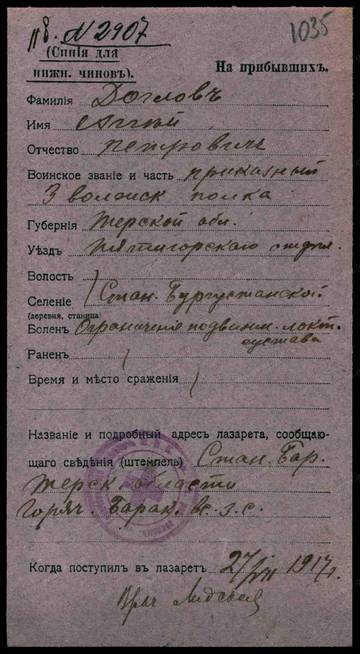 № 2907
1035
(Синія для
нижн. чиновъ).
На прибывшихъ.
Фамилія Догловъ
Имя
Отчество Петровичъ
Воинское званіе и часть приказный
3 Волжск полка
Губернія Терской обл.
Уѣздъ Пятигорскаго отдѣл.
Волость
Селеніе Стан. Бургустанской
(деревня, станица)
Боленъ Ограниченіе подвижн. локт.
сустава
Раненъ
Время и мѣсто сраженія
Названіе и подробный адресъ лазарета, сообщаю-
щаго свѣдѣнія (штемпель) Стан. Бор.
Терск области
Горяч. Барак. в. з. с.
Когда поступил въ лазаретъ 27/VII 1917 г.
Врач